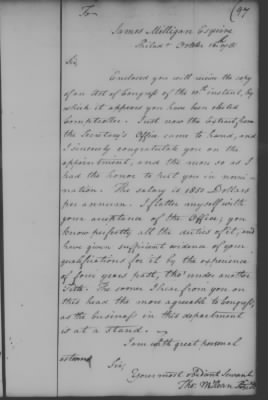 (97
To
James Milligan Esquire
Philad.a October
Sir
Enclosed you will receive the copy
of an Act of Congress of the 10th instant, by
which it appears you have been elected
Comptroller. Just now the Extract from
the Secretary's Office came to hand, and
I sincerely congratulate you on the
appointment, and the more so as I
had the honor to put you in nomi-
nation. The salary is 1850 Dollars
per annum. I flatter myself with
your acceptance of the Office; you
know perfectly all the duties of it, and
have given sufficient evidence of your
qualifications for it by the experience
of four years past, tho' under another
Title. The sooner I hear from you on
this head the more agreeable to Congress,
as the business in this department
is at a stand.
I am with great personal
esteem
Sir,
Your most obedient Servant
Tho. M:Kean